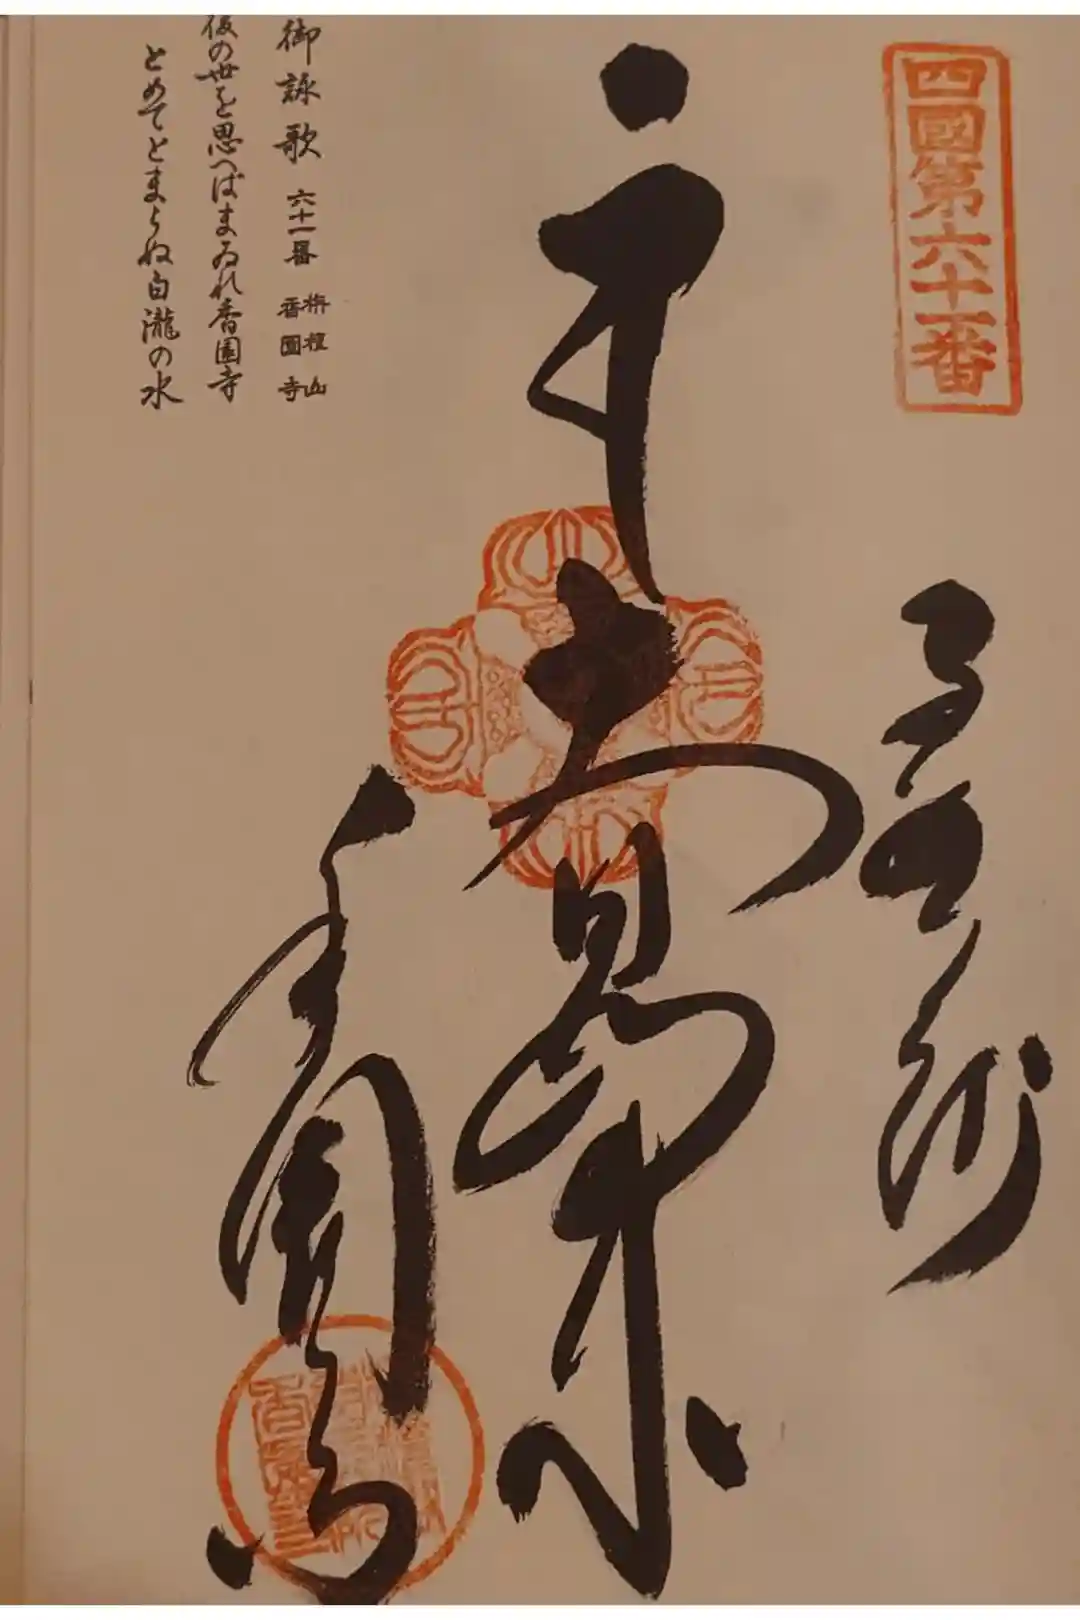 四國第六十一番
奉納
大日如来
香園寺
御詠歌 六十一番 栴檀山 香園寺
後の世を思へばまゐれ香園寺
とめてとまらぬ白瀧の水